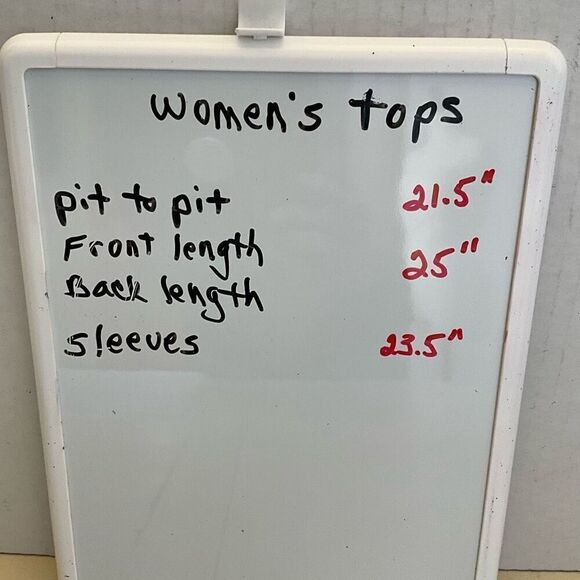 women's tops
pit to pit 21.5"
Front length 25"
Back length
sleeves 23.5"